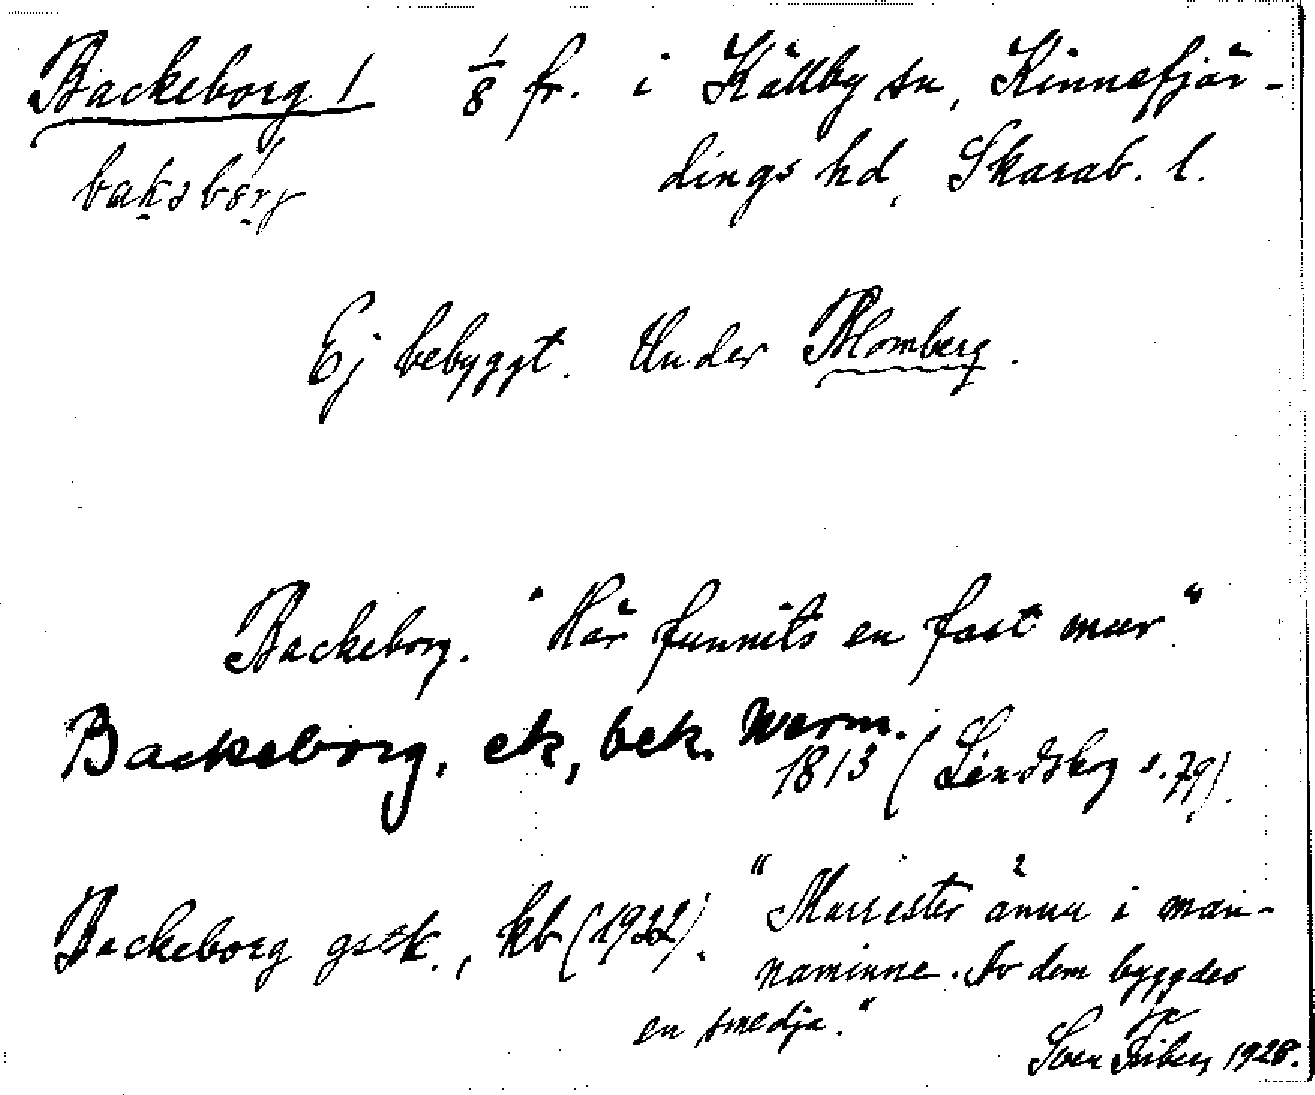 Backeborg 1 1/8 fr. i Källby sn, Kinnefjär-
baksbórg dings hd, Skarab. l.
Ej bebyggt. Under Blomberg.
Backeborg. "Här funnits en fast mur"
Backeborg, ek, bek. Werm.
1813 (Lindskog s. 79).
Backeborg gstk., kb (1922). "Murrester ännu i man-
naminne. Av dem byggdes
en smedja."
Sven 1928.